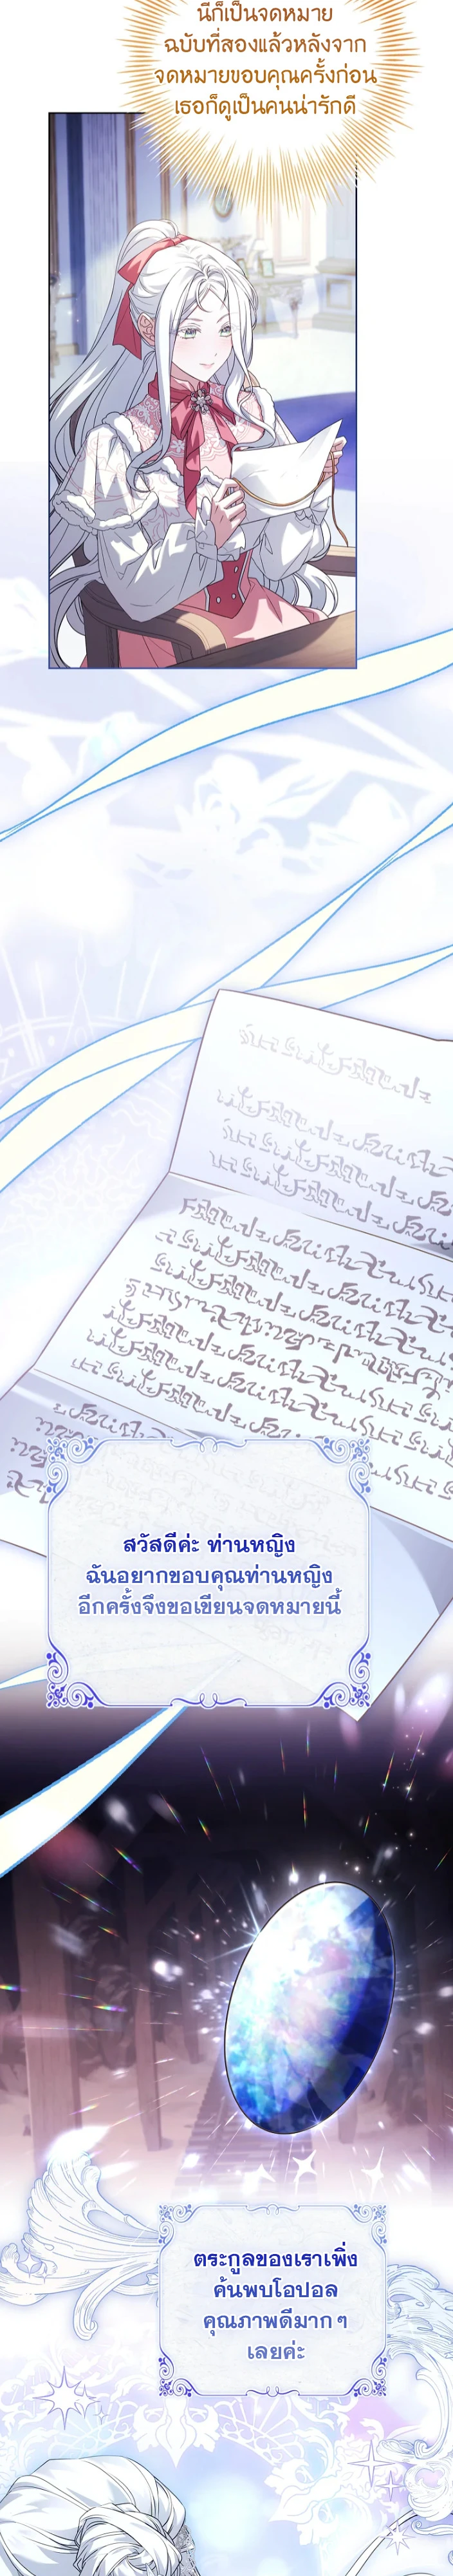 นี่ก็เป็นจดหมาย
ฉบับที่สองแล้วหลังจาก
จดหมายขอบคุณครั้งก่อน
เธอก็ดูเป็นคนน่ารักดี
สวัสดีค่ะ ท่านหญิง
ฉันอยากขอบคุณท่านหญิง
อีกครั้งจึงขอเขียนจดหมายนี้
ตระกูลของเราเพิ่ง
ค้นพบโอปอล
คุณภาพดีมากๆ
เลยค่ะ